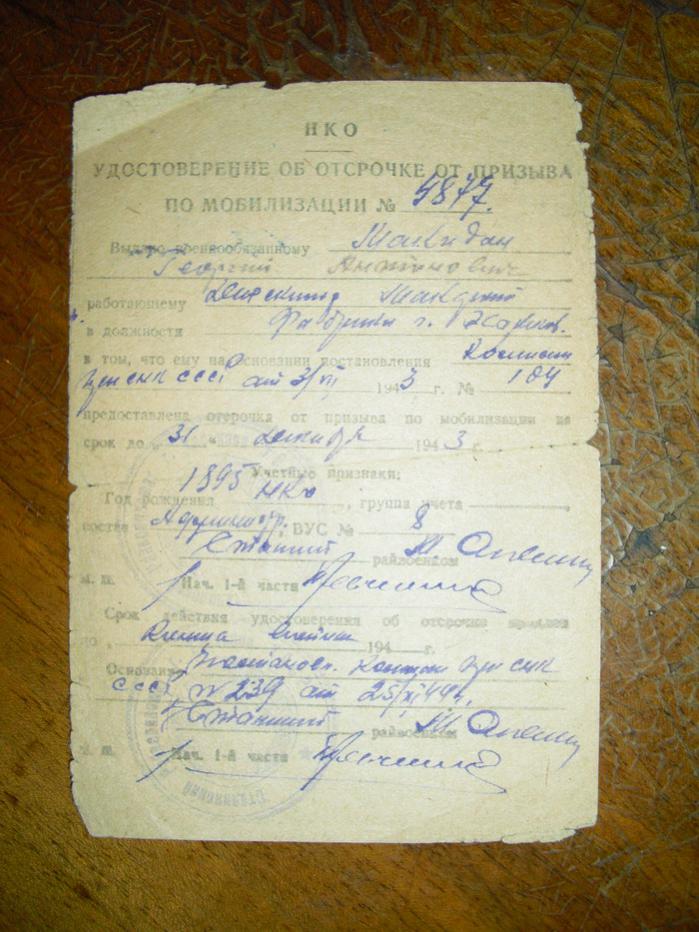 НКО
УДОСТОВЕРЕНИЕ ОБ ОТСРОЧКЕ ОТ ПРИЗЫВА
ПО МОБИЛИЗАЦИИ № 5877.
Выдано военнообязанному Макидан
Георгий Антонович
работающему Директор
в должности фабрики г.
в том, что ему на основании постановления Комиссии
при СНК СССР от 31/VII 1943 г. № 184
предоставлена отсрочка от призыва по мобилизации на
срок до „31" декабря 1943 г.
Учетные признаки:
Год рождения 1895 НКО, группа учета
состав Админстр., ВУС № 8
райвоенком
М. П. Нач. 1-й части
Срок действия удостоверения об отсрочке продлен
до конца войны 194 г.
Основание Постановл. комиссии при СНК
СССР № 239 от 25/XI 44 г.
райвоенком
М. П. Нач. 1-й части